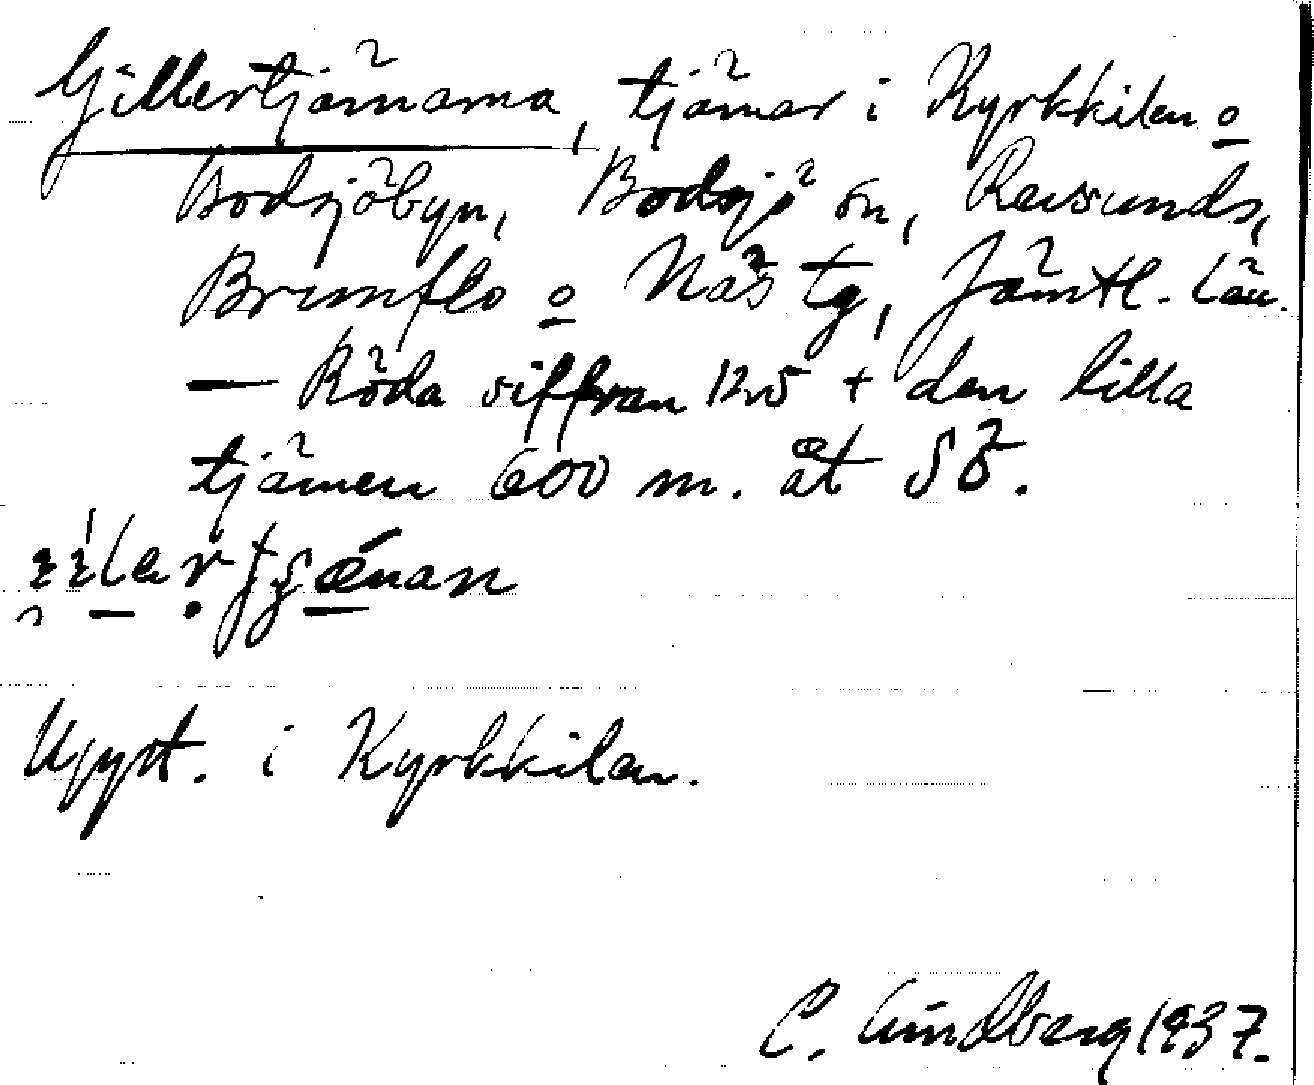 Gillertjärnarna, tjärnar i Kyrkkilen o
Bodsjöbyn, Bodsjö sn, Revsunds,
Brunflo o Näs tg, Jämtl. län.
— Röda siffran 125 + den lilla
tjärnen 600 m. åt SÖ.
Uppt. i Kyrkkilen.
C. Lindberg 1937.